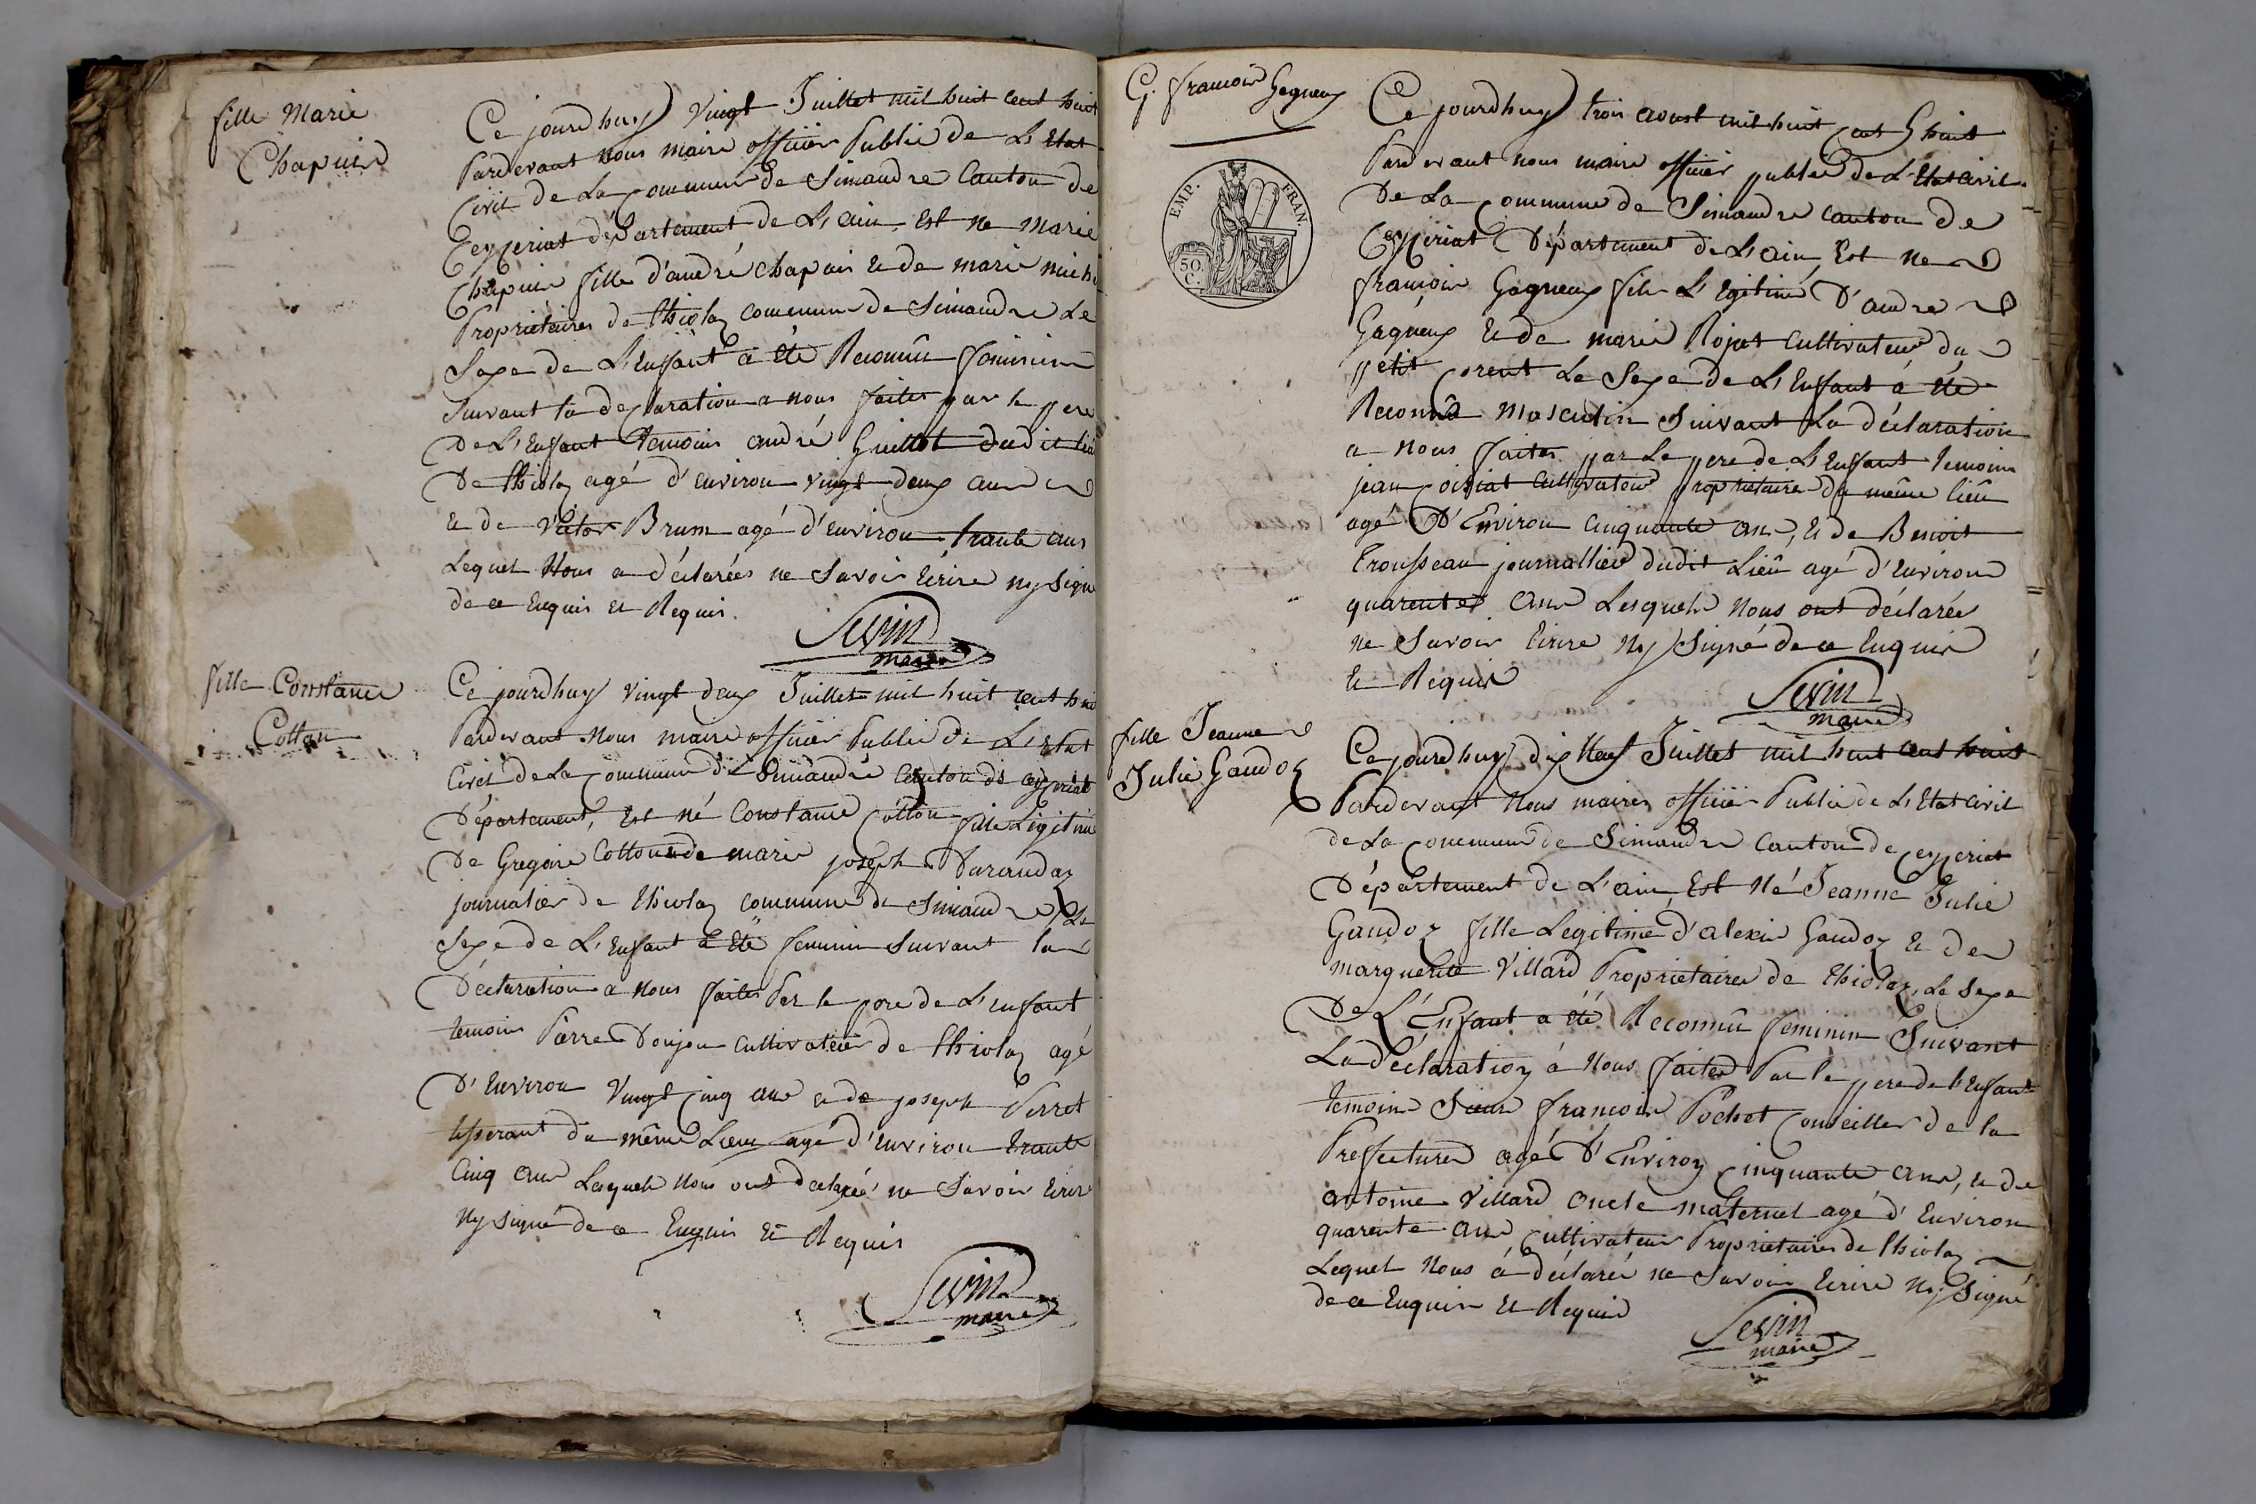 fille Marie
Chapuis
Ce jourdhuy vingt Juillet mil huit cent huit
Pardevant nous maire officier Public de L'Etat
Civil de La Commune de Simandre Canton de
Ceyzeriat département de L'ain. Est ne Marie
Chapuis fille d'andré Chapuis et de marie
Propriétaires de thiolaz commune de Simandre Le
Sexe de L'Enfant a été Reconnu feminin
Suivant la declaration a nous faites par le pere
De L'Enfant temoins andré Guillot dudit lieu
De thiolaz agé d'environ vingt deux ans
et de Victor Brum agé d'environ trante ans
Lequel Nous a déclarées ne Savoir Ecrire ny Signé
de ce Enquis et Requis.
Sevin
maire
fille Constance
Cotton
Ce jourdhuy vingt deux Juillet mil huit cent huit
Pardevant Nous maire officier Public de L'Etat
Civil de La Commune de Simandre Canton de ceyzeriat
Département, Est né Constance Cotton fille Légitime
De Gregoire Cotton et de marie joseph Durandaz
journalier de thiolaz commune de Simandre Le
Sexe de L'Enfant a été feminin Suivant la
Déclaration a Nous faites Par le pere de L'enfant
temoins Pierre Donjon Cultivateur de thiolaz agé
D'Environ Vingt Cinq ans et de joseph Perret
tisserant du même Lieux agé d'Environ trante
Cinq ans Lesquels Nous ont declarée ne Savoir Ecrire
Ny Signé de ce Enquis et Requis
Sevin
maire
G. francois Gagneux
EMP. FRAN.
50. C.
Ce jourdhuy trois aoust mil huit cent huit
Pardevant nous maire officier public de L'Etat Civil
De La Commune de Simandre Canton de
Ceyzeriat Département de L'ain Est ne
françois Gagneux fils L'Egitime D'andre
Gagneux et de marie Rojat Cultivateur du
petit Corent Le Sexe de L'Enfant á été
Reconnû Masculin Suivant La déclaration
a Nous faites par Le pere de L'Enfant temoins
jean Coiriat Cultivateur propriétaire du même lieu
agé D'Environ Cinquante ans, et de Benoit
trousseau journallier dudit Lieû agé d'Environ
quarente ans Lesquels Nous ont déclarée
ne Savoir Ecrire Ny Signé de ce Enquis
et Réquis
Sevin
maire
fille Jeanne
Julie Gaudoz
Ce jourdhuy dix Neuf Juillet mil huit cent huit
Pardevant Nous maires officier Public de L'Etat Civil
de La Commune de Simandre Canton de Ceyzeriat
Département de L'ain, Est Né Jeanne Julie
Gaudoz fille Légitime d'alexis Gaudoz et de
marguerite Villard Propriétaires de thiolaz, Le Sexe
De L'Enfant a été Reconnu feminin Suivant
La déclaration á Nous faites Par Le pere de l'Enfant
temoins Sieur françois Pochet Conseiller de la
Prefecture agé D'Environ Cinquante ans, et de
antoine Villard Oncle maternel agé d'Environ
quarente ans Cultivateur Propriétaires de thiolaz
Lequel Nous á déclarée ne Savoir Ecrire Ny Signé
de ce Enquis et Requis
Sevin
maire